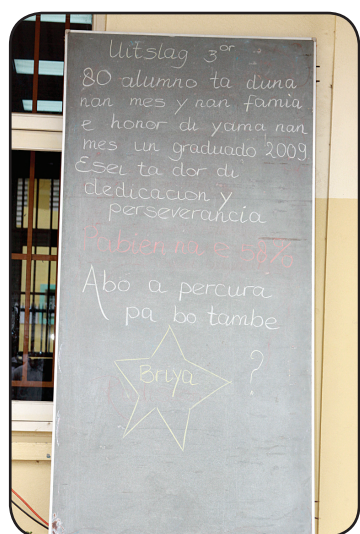 Uitslag 3or
80 alumno ta duna
nan mes y nan famia
e honor di yama nan
mes un graduado 2009
Esei ta dor di
dedicacion y
perseverancia
Pabien na e 58%
Abo a percura
pa bo tambe
Briya ?